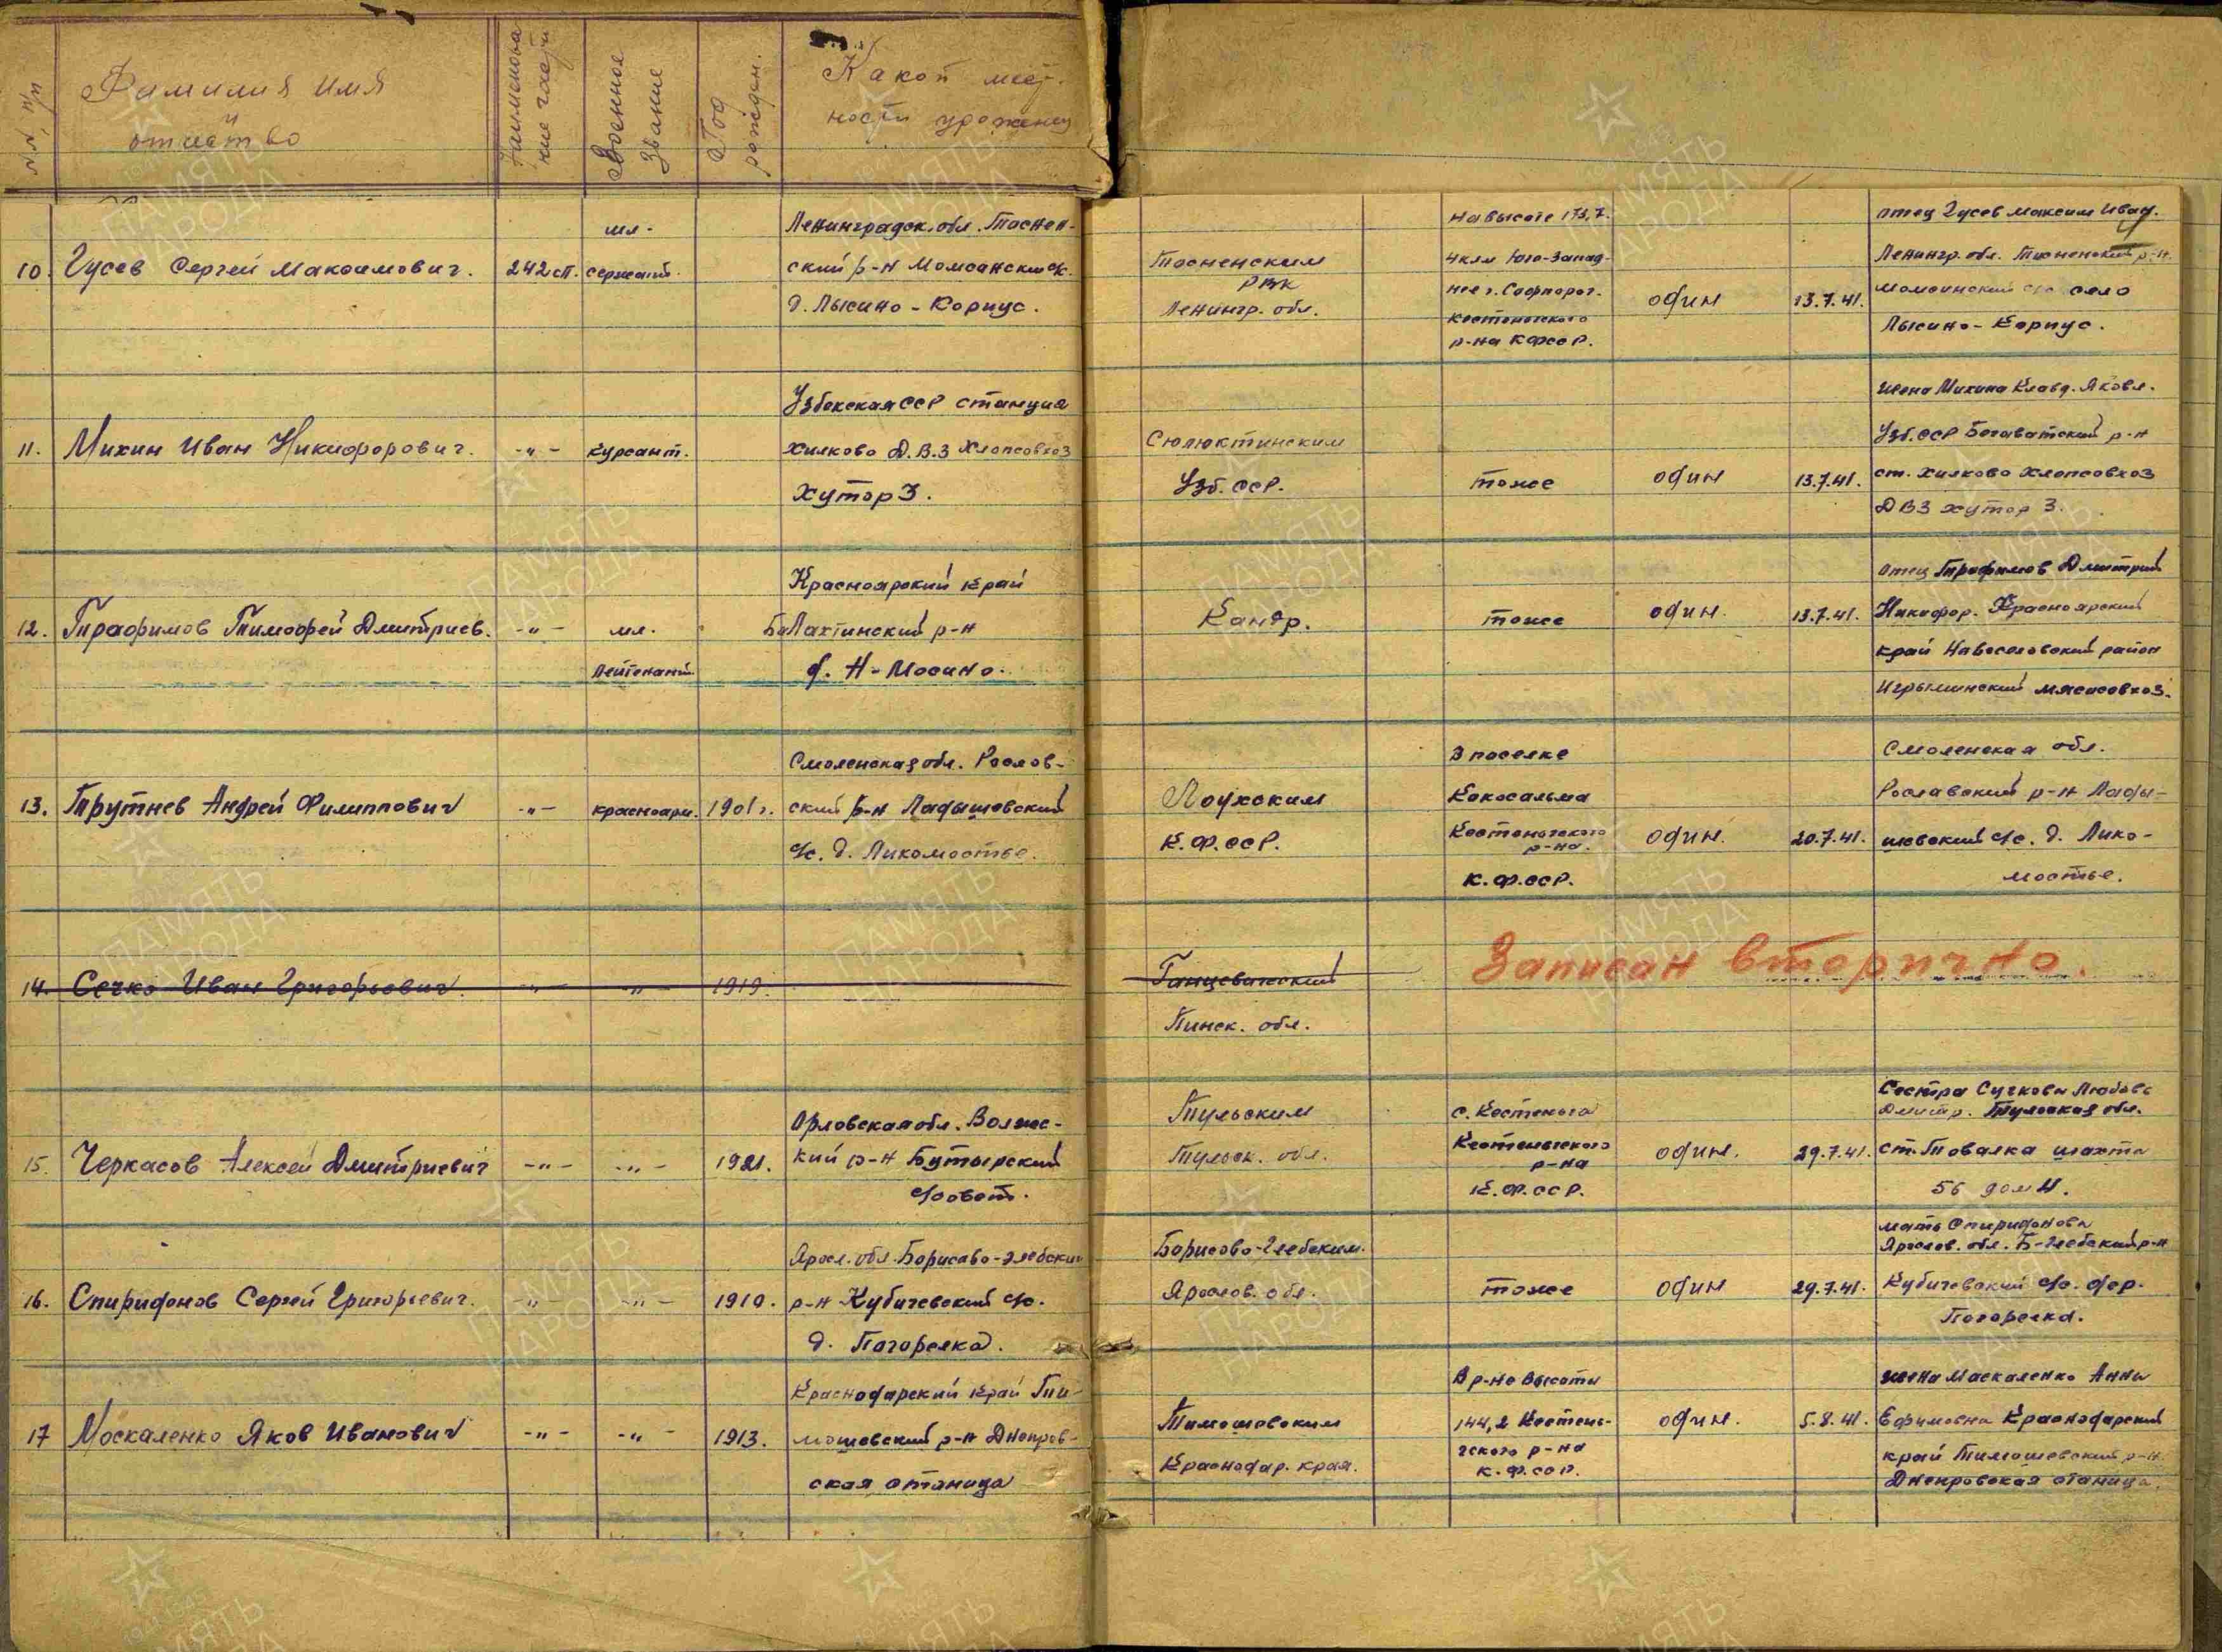 №№ п/п
Фамилия имя
и
отчество
Наименова
ние части
Военное
звание
Год
рожден.
Какой мест-
ности уроженец
10. Гусев Сергей Максимович. 242 сп. мл. сержант.
Ленинградск. обл. Тоснен-
ский р-н Момсанский с/с.
д. Лысино-Корпус.
Тосненским
РВК
Ленингр. обл.
на высоте 173,7.
4 км Юго-Запад-
нее г. Софпорог.
Кестеньгского
р-на КФССР.
один
13.7.41.
отец Гусев Максим Иван.
Ленингр. обл. Тосненский р-н.
Момсинский с/с село
Лысино-Корпус.
11. Михин Иван Никифорович. -"- курсант.
Узбекская ССР станция
Хилково Д.В.З Хлопсовхоз
Хутор 3.
Сюлюктинским
Узб. ССР.
тоже
один
13.7.41.
жена Михина Клавд. Яковл.
Узб. ССР Бегаватский р-н
ст. Хилково Хлопсовхоз
ДВЗ хутор 3.
12. Трофимов Тимофей Дмитриев. -"- мл.
лейтенант.
Красноярский край
Балахтинский р-н
д. Н-Мосино.
Кандр.
тоже
один.
13.7.41.
отец Трофимов Дмитрий
Никифор. Красноярский
край Новоселовский район
Игрышинский мясосовхоз.
13. Трутнев Андрей Филиппович -"- красноарм. 1901г.
Смоленская обл. Рослов-
ский р-н Ладышовский
с/с. д. Ликомостье.
Лоухским
К.Ф.ССР.
В поселке
Кокосальма
Кестеньгского
р-на.
К.Ф.ССР.
один.
20.7.41.
Смоленская обл.
Рославский р-н Лады-
шовский с/с. д. Лико-
мостье.
14. Сечко Иван Григорьевич. -"- -"- 1919.
Ганцевичский
Пинск. обл.
Записан вторично.
15. Черкасов Алексей Дмитриевич -"- -"- 1921.
Орловская обл. Волже-
кий р-н Бутырский
с/совет.
Тульским
Тульск. обл.
с. Кестеньга
Кестеньгского
р-на
К.Ф.ССР.
один.
29.7.41.
Сестра Сучкова Любовь
Дмитр. Тульская обл.
ст. Товалка шахта
56 дом 4.
16. Спиридонов Сергей Григорьевич. -"- -"- 1910.
Яросл. обл. Борисово-Глебский
р-н Кубичевский с/с.
д. Погорелка.
Борисово-Глебским.
Яросл ов. обл.
тоже
один
29.7.41.
мать Спиридонова
Яросл ов. обл. Б-Глебский р-н
Кубичевский с/с. дер.
Погорелка.
17 Москаленко Яков Иванович -"- -"- 1913.
Краснодарский край Ти-
мошевский р-н Днепров-
ская станица
Тимошевским
Краснодар. края.
В р-не высоты
144,2 Кестень-
гского р-на
К.Ф.ССР.
один.
5.8.41.
жена Маскаленко Анна
Ефимовна Краснодарский
край Тимошевский р-н
Днепровская станица.
ПАМЯТЬ
НАРОДА